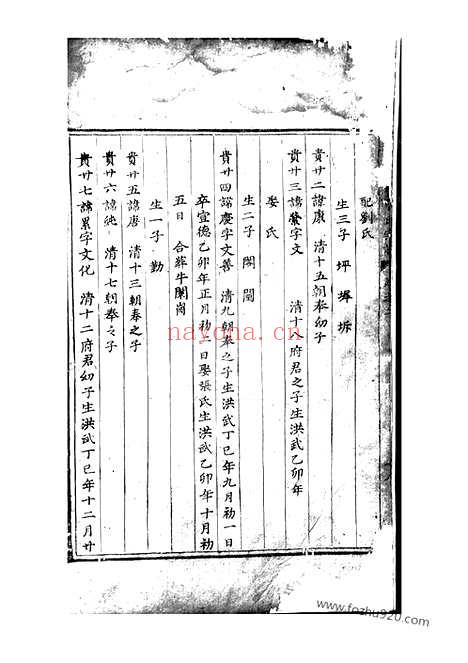 配劉氏
生三子 坪 墀 坼
貴廿二諱康 清十五朝奉幼子
貴廿三諱 字文 清十八府君之子生洪武乙卯年
娶 氏
生二子 閣 閏
貴廿四諱慶字文善 清九朝奉之子生洪武丁巳年九月初一日
卒宣德乙卯年正月初二日娶張氏生洪武乙卯年十月初
五日 合葬牛闌崗
生一子 勤
貴廿五諱唐 清十三朝奉之子
貴廿六諱純 清十七朝奉之子
貴廿七諱累字文化 清十二府君幼子生洪武丁巳年十二月廿
nayona.cn
www.fozhu920.com